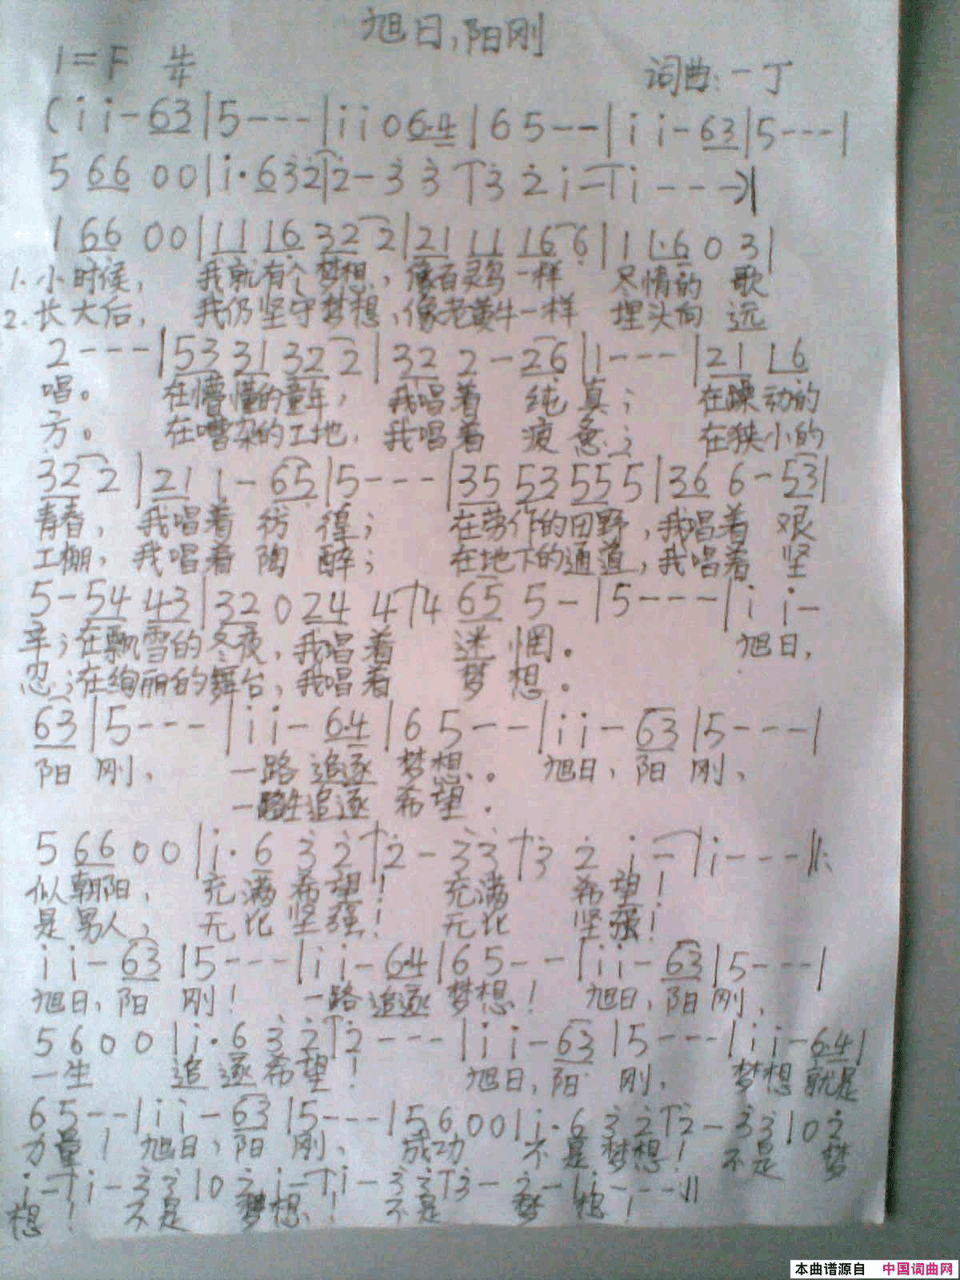 旭日,阳刚
1=F 4/4
词曲:一丁
(i i - 63 | 5 - - - | i i 0 6·4 | 6 5 - - | i i - 63 | 5 - - - |
5 66 0 0 | i· 6 3 2 | 2 - 3 3 | 3 2 i - | i - - -) |
1 66 0 0 | 11 16 32 2 | 21 11 16 6 | 1 1·6 0 3 |
1. 小时候, 我就有个梦想,像百灵鸟一样 尽情的 歌
2. 长大后, 我仍坚守梦想,像老黄牛一样 埋头向 远
2 - - - | 53 31 32 2 | 32 2 - 26 | 1 - - - | 21 16
唱。 在懵懂的童年, 我唱着 纯真; 在躁动的
方。 在嘈杂的工地, 我唱着 疲惫; 在狭小的
32 2 | 21 1 - 65 | 5 - - - | 35 53 55 5 | 36 6 - 53 |
青春, 我唱着 彷徨; 在劳作的田野,我唱着 艰
工棚, 我唱着 陶醉; 在地下的通道,我唱着 坚
5 - 54 43 | 32 0 24 4 | 4 65 5 - | 5 - - - | i i -
辛;在飘雪的冬夜,我唱着 迷惘。 旭日,
忍;在绚丽的舞台,我唱着 梦想。
63 | 5 - - - | i i - 6·4 | 6 5 - - | i i - 63 | 5 - - - |
阳 刚、 一路 追逐 梦想、。 旭日,阳 刚、
一路 追逐 希望.
5 66 0 0 | i· 6 3 2 | 2 - 3 3 | 3 2 i - | i - - - :|
似朝阳, 充满希望! 充满 希望!
是男人, 无比坚强! 无比 坚强!
i i - 63 | 5 - - - | i i - 6·4 | 6 5 - - | i i - 63 | 5 - - - |
旭日,阳 刚! 一路 追逐 梦想! 旭日,阳刚、
5 6 0 0 | i· 6 3 2 | 2 - - - | i i - 63 | 5 - - - | i i - 6·4 |
一生 追逐希望! 旭日,阳 刚, 梦想就是
6 5 - - | i i - 63 | 5 - - - | 5 6 0 0 | i· 6 3 2 | 2 - 3 3 | 0 2
力量! 旭日,阳 刚、 成功 不是梦想! 不是 梦
i - | i - 3 3 | 0 2 i - | i - 3 3 | 3 - 2 - | i - - - ||
想! 不是 梦想! 不是 梦 想!
本曲谱源自 中国词曲网